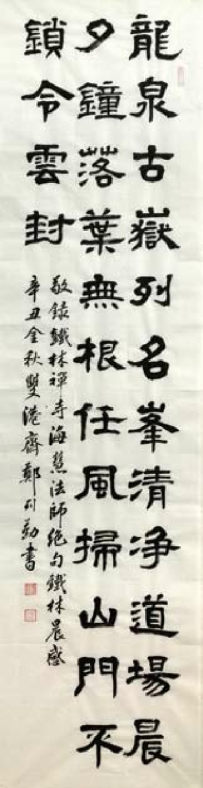 龍泉古嶽列名峯清净道場晨
夕鐘落葉無根任風掃山門不
鎖令雲封
敬錄鐵林禪寺海慧法師絶句鐵林晨感
辛丑金秋雙港齋鄭書